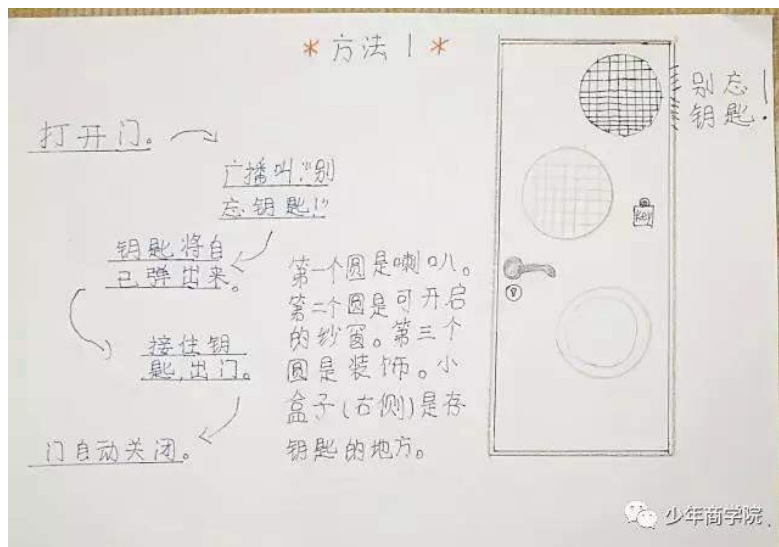 *方法1*
打开门。
广播叫:“别
忘钥匙!”
钥匙将自
己弹出来。
接住钥
匙,出门。
门自动关闭。
第一个圆是喇叭。
第二个圆是可开启
的纱窗。第三个
圆是装饰。小
盒子(右侧)是存
钥匙的地方。
key
别忘
钥匙!
少年商学院